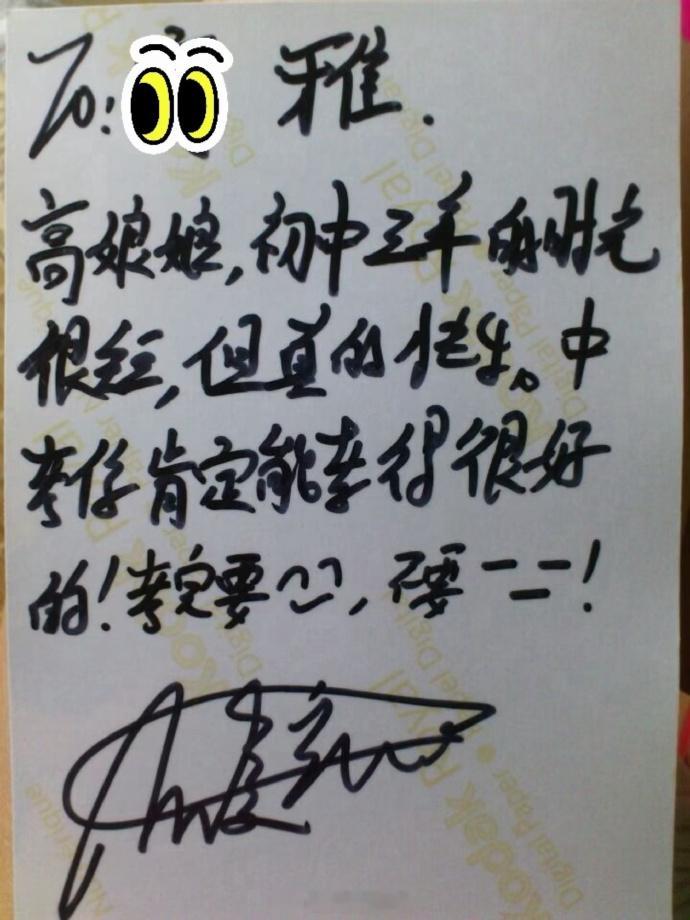 To: 雅.
高娘娘,初中三年的时光
很短,但真的快乐。中
考你肯定能考得很好
的!考完要^_^,不要-_-!
Kodak Royal
Digital Paper